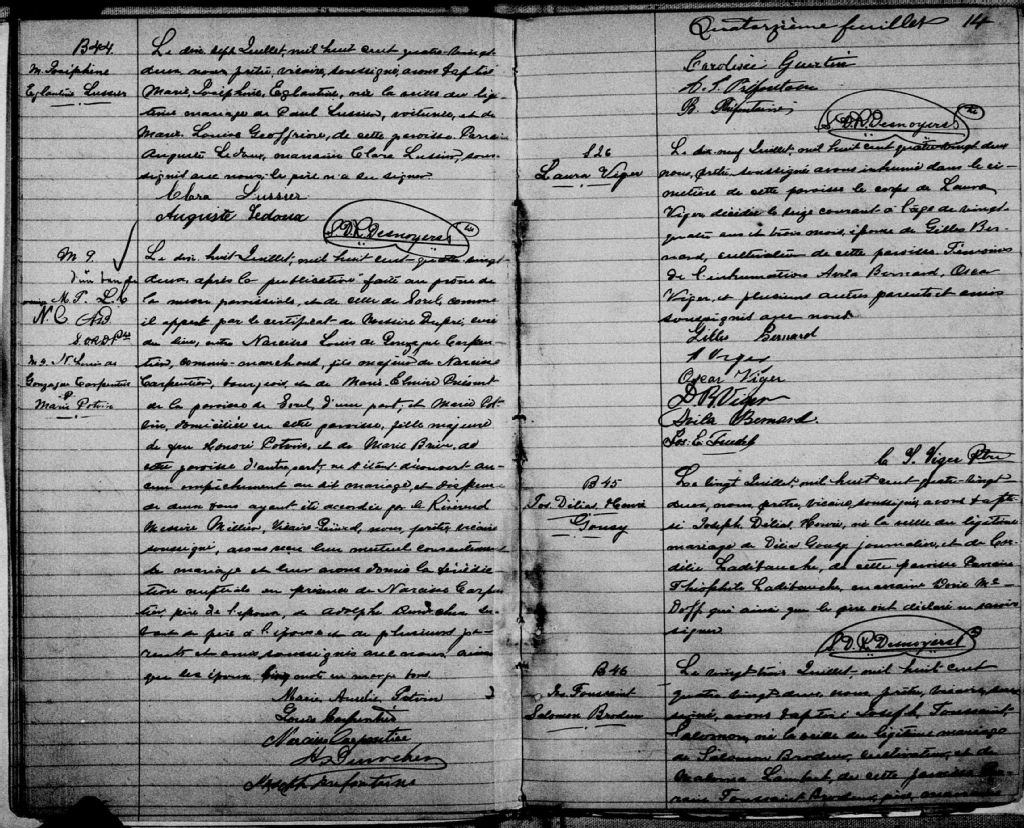 B44
M. Josephine
Eglantine Lussier
Le dix sept Juillet, mil huit cent quatre-vingt
deux, nous prêtre, vicaire, soussigné, avons baptisé
Marie, Josephine, Eglantine, née la veille du légi
time mariage de Paul Lussier, voiturier, et de
Marie Louise Geoffrion, de cette paroisse. Parrain
Auguste Ledoux, marraine Clara Lussier, sous-
signés avec nous, le père n'a su signer.
Clara Lussier
Auguste Ledoux
J. D. R. Desnoyers
M 9
N C
M 9. N Louis de
Gonzague Carpentier
&
Marie Potvin
Le dix huit Juillet, mil huit cent quatre vingt
deux, après la publication faite au prône de
la messe paroissiale, et de celle de Sorel, comme
il appert par le certificat de Messire Dupré, curé
du lieu, entre Narcisse Louis de Gonzague Carpen
tier, commis-marchand, fils majeur de Narcisse
Carpentier, bourgeois, et de Marie
de la paroisse de Sorel, d'une part, et Marie Pot
vin, domiciliée en cette paroisse, fille majeure
de feu Honoré Potvin, et de Marie de
cette paroisse d'autre part, ne s'étant découvert au
cun empêchement au dit mariage, et dispense
de deux bans ayant été accordée par le Révérend
Messire Vicaire Général, nous, prêtre, vicaire
soussigné, avons reçu leur mutuel consentement
de mariage et leur avons donné la bénédic
tion nuptiale en présence de Narcisse Carpen
tier, père de l'époux, de Adolphe Durocher ser
vant de père à l'épouse et de plusieurs pa-
rents et amis soussignés avec nous, ainsi
que les époux mots en marge bons.
Marie Amelie Potvin
Louis Carpentier
Narcisse Carpentier
A Durocher
Joseph Prefontaine
Quatorzième feuillet 14
Cordélie Guertin
A. S. Préfontaine
B Préfontaine
J. D. R. Desnoyers
S26
Laura Viger
Le dix-neuf Juillet, mil huit cent quatre vingt deux
nous, prêtre soussigné avons inhumé dans le ci
metière de cette paroisse le corps de Laura
Viger, décédée le seize courant à l'âge de vingt
quatre ans et trois mois, épouse de Gilles Ber
nard, cultivateur de cette paroisse. Témoins
de l'inhumation Avila Bernard, Oscar
Viger, et plusieurs autres parents et amis
soussignés avec nous.
Gilles Bernard
Viger
Oscar Viger
D B Viger
Avila Bernard.
Jos. E.
C. S. Viger Ptre
B 45
Jos. Délias Henri
Gousy
Le vingt Juillet, mil huit cent quatre-vingt
deux, nous, prêtre, vicaire, soussigné, avons bapti
sé Joseph Délias, Henri, né la veille du légitime
mariage de Délia Gousy journalier, et de Cor
délie Ladébauche, de cette paroisse Parrain
Théophile Ladébauche, marraine Mc
Doff qui ainsi que le père ont déclaré ne savoir
signer
J. D. R. Desnoyers
B46
Jos. Toussaint
Salomon Brodeur
Le vingt trois Juillet, mil huit cent
quatre vingt deux, nous prêtre, vicaire, sous
signé, avons baptisé Joseph, Toussaint,
Salomon, né la veille du légitime mariage
de Salomon Brodeur, cultivateur, et de
Malvina Lambert, de cette paroisse Par
rain Toussaint Brodeur, père, marraine